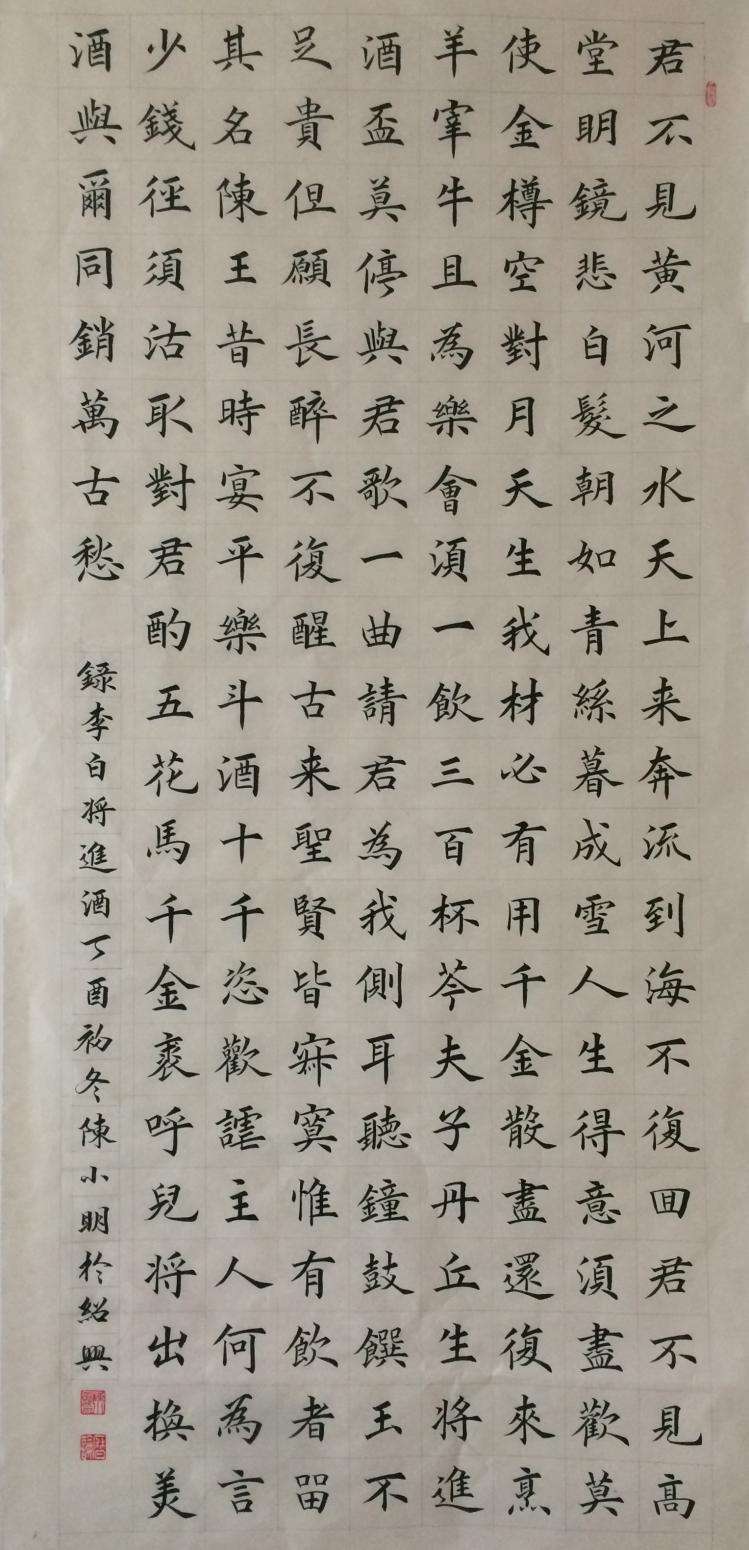 君不見黄河之水天上来奔流到海不復囬君不見高
堂眀鏡悲白髮朝如青絲暮成雪人生得意須盡歡莫
使金樽空對月天生我材必有用千金散盡還復來烹
羊宰牛且為樂會須一飲三百杯芩夫子丹丘生将進
酒盃莫停與君歌一曲請君為我側耳聽鐘鼓饌王不
足貴但願長醉不復醒古来聖賢皆寂寞惟有飲者留
其名陳王昔時宴平樂斗酒十千恣歡謔主人何為言
少錢徑須沽取對君酌五花馬千金裘呼兒将出換美
酒與爾同銷萬古愁
録李白将進酒丁酉初冬陳小眀於紹興